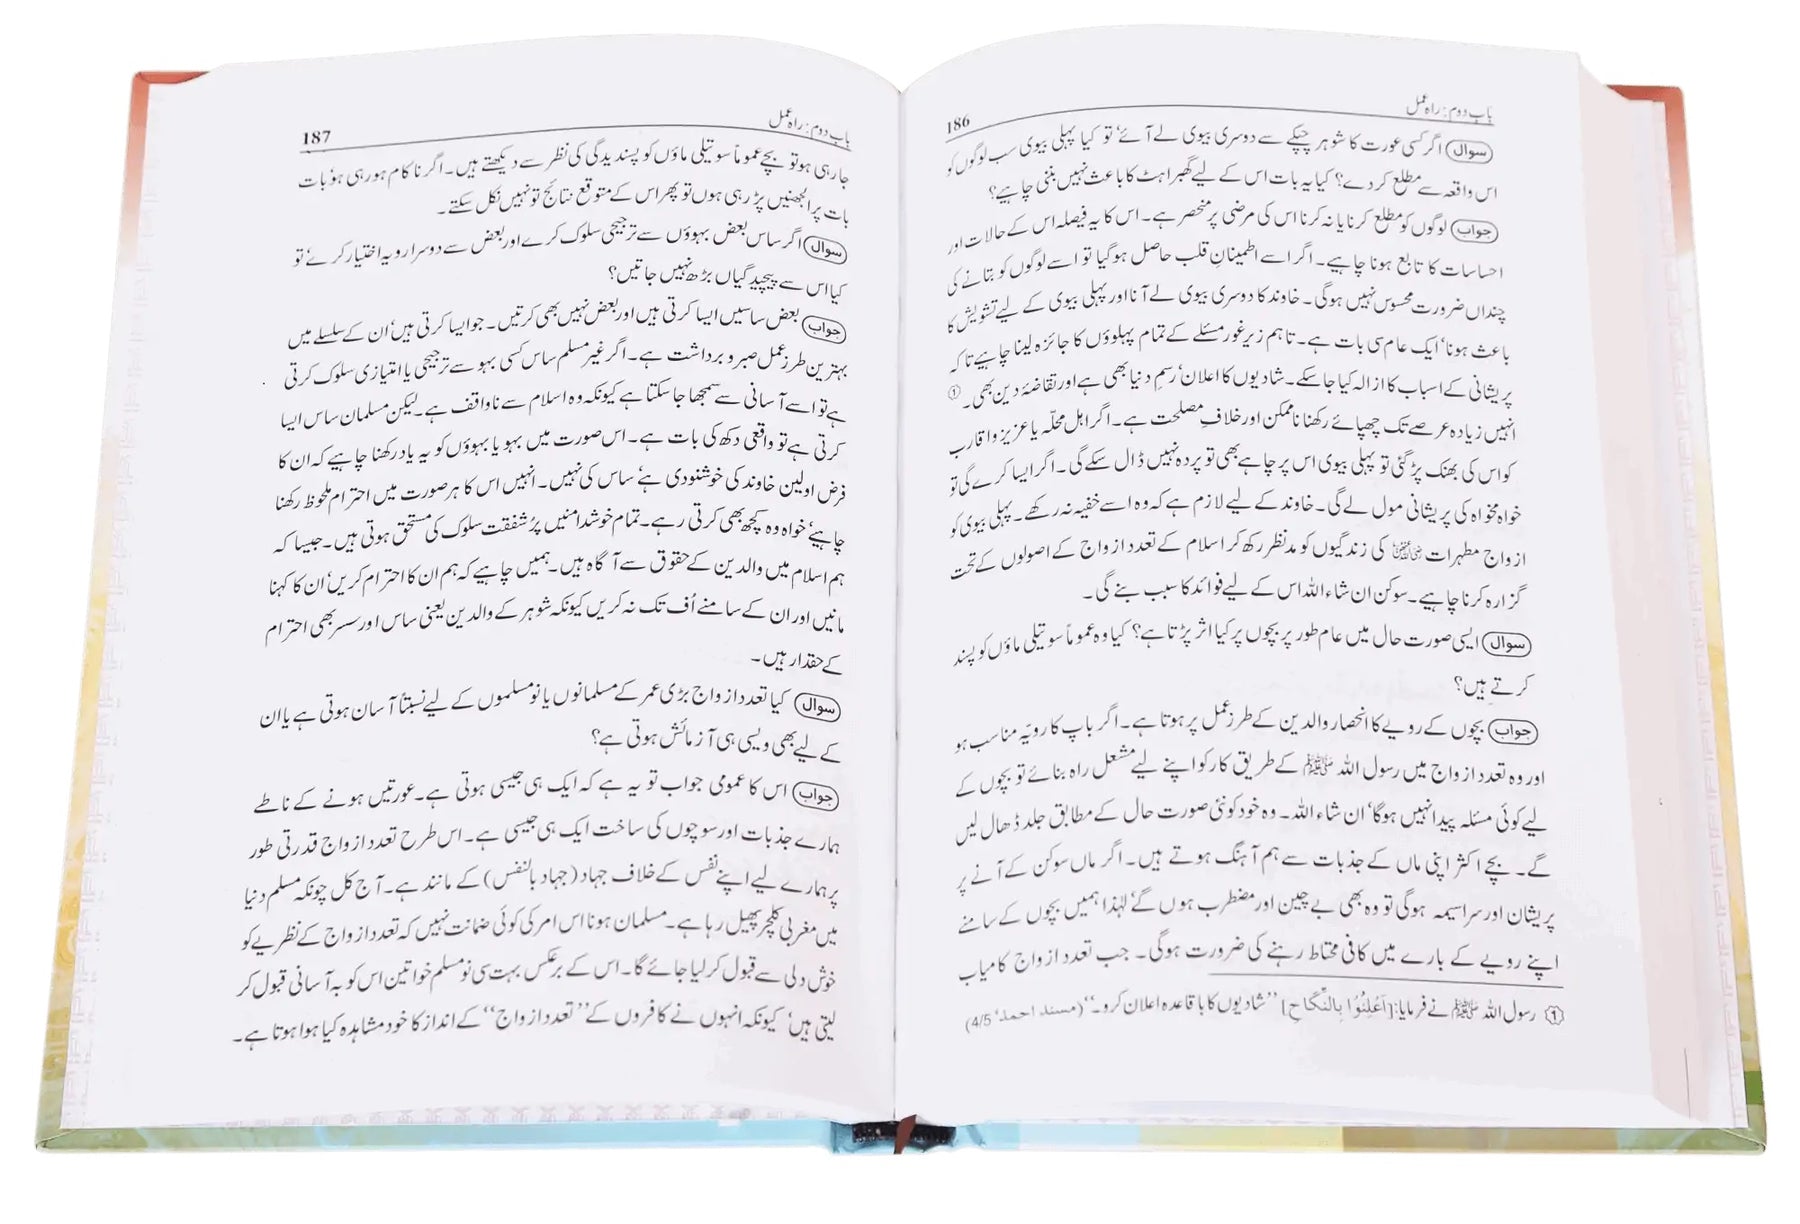 باب دوم: راہ عمل
186
سوال اگر کسی عورت کا شوہر چپکے سے دوسری بیوی لے آئے‘ تو کیا پہلی بیوی سب لوگوں کو
اس واقعہ سے مطلع کر دے؟ کیا یہ بات اس کے لیے گھبراہٹ کا باعث نہیں بننی چاہیے؟
جواب لوگوں کو مطلع کرنا یا نہ کرنا اس کی مرضی پر منحصر ہے۔ اس کا یہ فیصلہ اس کے حالات اور
احساسات کا تابع ہونا چاہیے۔ اگر اسے اطمینانِ قلب حاصل ہوگیا تو اسے لوگوں کو بتانے کی
چنداں ضرورت محسوس نہیں ہوگی۔ خاوند کا دوسری بیوی لے آنا اور پہلی بیوی کے لیے تشویش کا
باعث ہونا‘ ایک عام سی بات ہے۔ تاہم زیر غور مسئلے کے تمام پہلوؤں کا جائزہ لینا چاہیے تاکہ
پریشانی کے اسباب کا ازالہ کیا جا سکے۔ شادیوں کا اعلان‘ رسمِ دنیا بھی ہے اور تقاضۂ دین بھی۔ ①
انہیں زیادہ عرصے تک چھپائے رکھنا ناممکن اور خلافِ مصلحت ہے۔ اگر اہل محلّہ یا عزیز و اقارب
کو اس کی بھنک پڑ گئی تو پہلی بیوی اس پر چاہے بھی تو پردہ نہیں ڈال سکے گی۔ اگر ایسا کرے گی تو
خواہ مخواہ کی پریشانی مول لے گی۔ خاوند کے لیے لازم ہے کہ وہ اسے خفیہ نہ رکھے۔ پہلی بیوی کو
ازواج مطہرات کی زندگیوں کو مدنظر رکھ کر اسلام کے تعدد ازواج کے اصولوں کے تحت
گزارہ کرنا چاہیے۔ سوکن ان شاء اللہ اس کے لیے فوائد کا سبب بنے گی۔
سوال ایسی صورت حال میں عام طور پر بچوں پر کیا اثر پڑتا ہے؟ کیا وہ عموماً سوتیلی ماؤں کو پسند
کرتے ہیں؟
جواب بچوں کے رویے کا انحصار والدین کے طرز عمل پر ہوتا ہے۔ اگر باپ کا رویّہ مناسب ہو
اور وہ تعدد ازواج میں رسول اللہ ﷺ کے طریق کار کو اپنے لیے مشعل راہ بنائے تو بچوں کے
لیے کوئی مسئلہ پیدا نہیں ہوگا‘ ان شاء اللہ۔ وہ خود کو نئی صورت حال کے مطابق جلد ڈھال لیں
گے۔ بچے اکثر اپنی ماں کے جذبات سے ہم آہنگ ہوتے ہیں۔ اگر ماں سوکن کے آنے پر
پریشان اور سراسیمہ ہوگی تو وہ بھی بے چین اور مضطرب ہوں گے‘ لہٰذا ہمیں بچوں کے سامنے
اپنے رویے کے بارے میں کافی محتاط رہنے کی ضرورت ہوگی۔ جب تعدد ازواج کامیاب
① رسول اللہ ﷺ نے فرمایا: [اَعْلِنُوْا بِالنِّکَاحِ] ”شادیوں کا باقاعدہ اعلان کرو۔“ (مسند احمد‘ 4/5)
باب دوم: راہ عمل
187
جا رہی ہو تو بچے عموماً سوتیلی ماؤں کو پسندیدگی کی نظر سے دیکھتے ہیں۔ اگر ناکام ہو رہی ہو‘ بات
بات پر الجھنیں پڑ رہی ہوں تو پھر اس کے متوقع نتائج تو نہیں نکل سکتے۔
سوال اگر ساس بعض بہوؤں سے ترجیحی سلوک کرے اور بعض سے دوسرا رویہ اختیار کرے‘ تو
کیا اس سے پیچیدگیاں بڑھ نہیں جاتیں؟
جواب بعض ساسیں ایسا کرتی ہیں اور بعض نہیں بھی کرتیں۔ جو ایسا کرتی ہیں‘ ان کے سلسلے میں
بہترین طرز عمل صبر و برداشت ہے۔ اگر غیر مسلم ساس کسی بہو سے ترجیحی یا امتیازی سلوک کرتی
ہے تو اسے آسانی سے سمجھا جا سکتا ہے کیونکہ وہ اسلام سے ناواقف ہے۔ لیکن مسلمان ساس ایسا
کرتی ہے تو واقعی دکھ کی بات ہے۔ اس صورت میں بہو یا بہوؤں کو یہ یاد رکھنا چاہیے کہ ان کا
فرض اولین خاوند کی خوشنودی ہے‘ ساس کی نہیں۔ انہیں اس کا ہر صورت میں احترام ملحوظ رکھنا
چاہیے‘ خواہ وہ کچھ بھی کرتی رہے۔ تمام خوشدامنیں پرُ شفقت سلوک کی مستحق ہوتی ہیں۔ جیسا کہ
ہم اسلام میں والدین کے حقوق سے آگاہ ہیں۔ ہمیں چاہیے کہ ہم ان کا احترام کریں‘ ان کا کہنا
مانیں اور ان کے سامنے اُف تک نہ کریں کیونکہ شوہر کے والدین یعنی ساس اور سسر بھی احترام
کے حقدار ہیں۔
سوال کیا تعدد ازواج بڑی عمر کے مسلمانوں یا نو مسلموں کے لیے نسبتاً آسان ہوتی ہے یا ان
کے لیے بھی ویسی ہی آزمائش ہوتی ہے؟
جواب اس کا عمومی جواب تو یہ ہے کہ ایک ہی جیسی ہوتی ہے۔ عورتیں ہونے کے ناطے
ہمارے جذبات اور سوچوں کی ساخت ایک ہی جیسی ہے۔ اس طرح تعدد ازواج قدرتی طور
پر ہمارے لیے اپنے نفس کے خلاف جہاد (جہاد بالنفس) کے مانند ہے۔ آج کل چونکہ مسلم دنیا
میں مغربی کلچر پھیل رہا ہے۔ مسلمان ہونا اس امر کی کوئی ضمانت نہیں کہ تعدد ازواج کے نظریے کو
خوش دلی سے قبول کر لیا جائے گا۔ اس کے برعکس بہت سی نو مسلم خواتین اس کو بہ آسانی قبول کر
لیتی ہیں‘ کیونکہ انہوں نے کافروں کے ”تعدد ازواج“ کے انداز کا خود مشاہدہ کیا ہوا ہوتا ہے۔